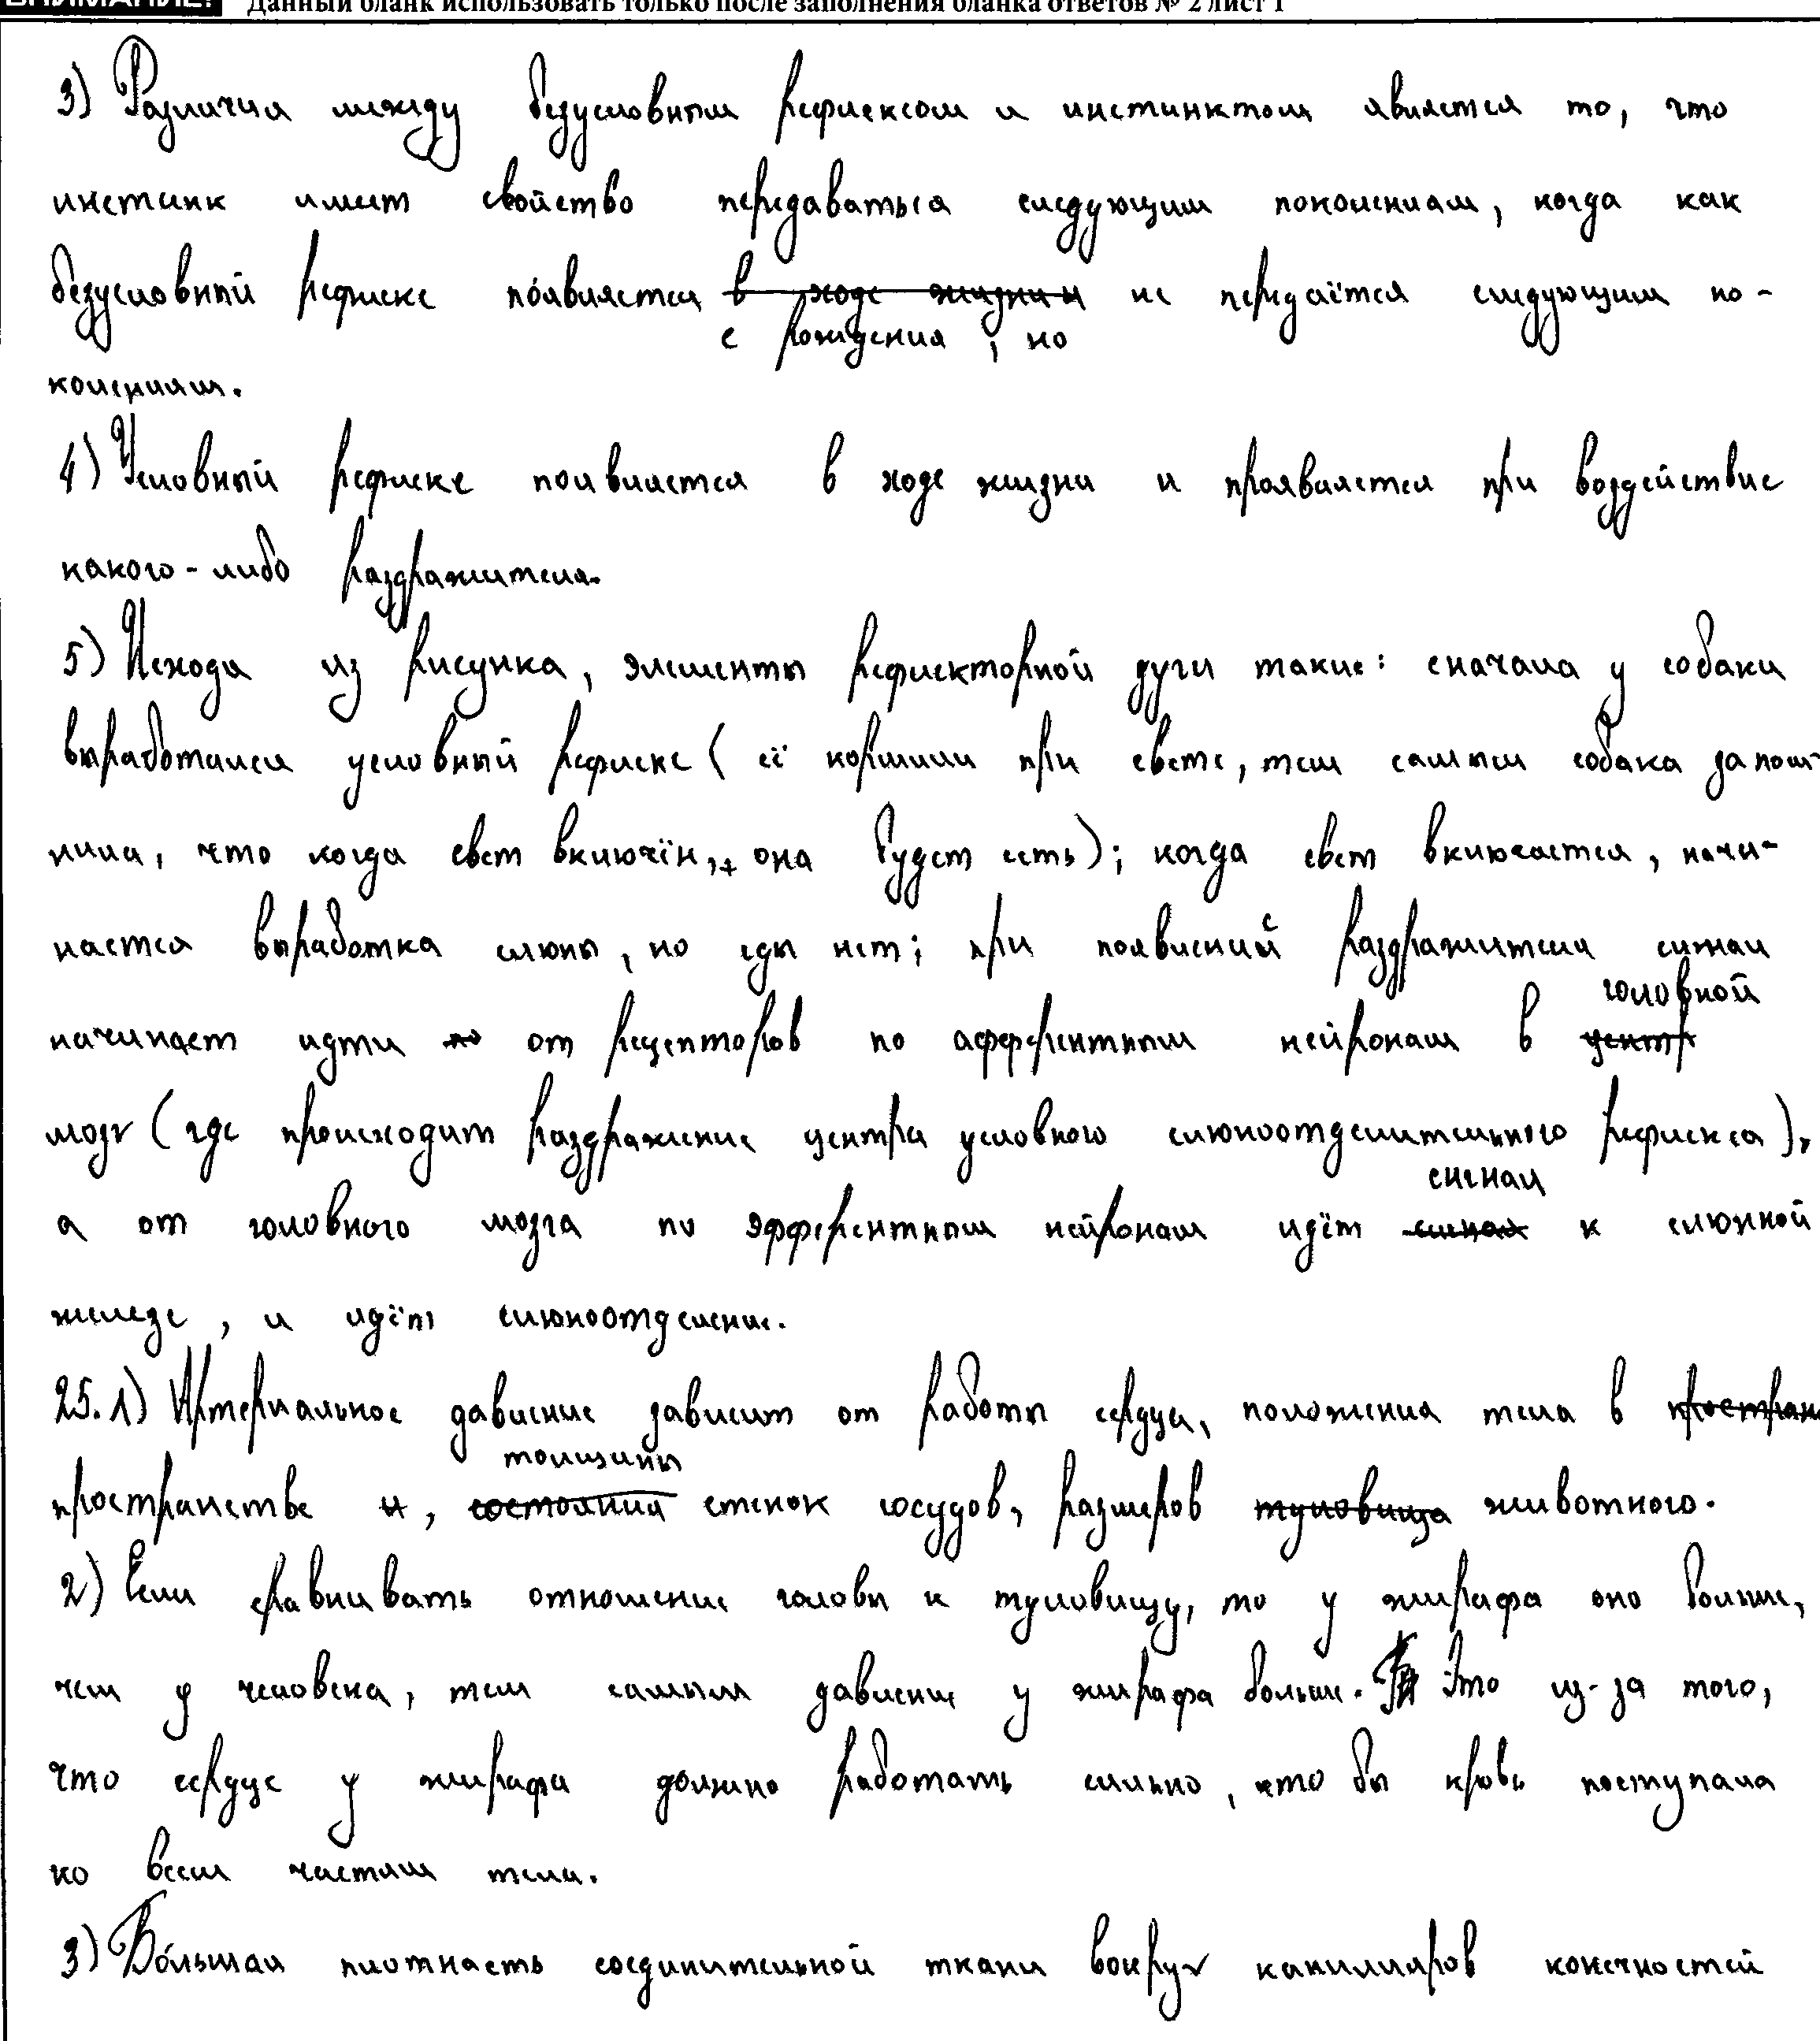 ВНИМАНИЕ! Данный бланк использовать только после заполнения бланка ответов № 2 лист 1
3) Различия между безусловным рефлексом и инстинктом является то, что
инстинк имеет свойство передаваться следующим поколениям, когда как
безусловный рефлекс появляется в ходе жизни и не передаётся следующим по-
с рождения, но
колениям.
4) Условный рефлекс появляется в ходе жизни и проявляется при воздействие
какого-либо раздражителя.
5) Исходя из рисунка, элементы рефлекторной дуги такие: сначала у собаки
выработался условный рефлекс (её кормили при свете, тем самым собака запом-
нила, что когда свет включён, она будет есть); когда свет включается, начи-
нается выработка слюны, но еды нет; при появлений раздражителя сигнал
головной
начинает идти по от рецепторов по афферентным нейронам в центр
мозг (где происходит раздражение центра условного слюноотделительного рефлекса),
сигнал
а от головного мозга по эфферентным нейронам идёт к слюнной
железе, и идёт слюноотделение.
25.1) Артериальное давление зависит от работы сердца, положения тела в простран
толщины
пространстве и, состояния стенок сосудов, размеров туловища животного.
2) Если сравнивать отношение головы к туловищу, то у жирафа оно больше,
чем у человека, тем самым давление у жирафа больше. Это из-за того,
что сердце у жирафа должно работать сильно, что бы кровь поступала
ко всем частям тела.
3) Бо́льшая плотнасть соединительной ткани вокруг капилляров конечностей